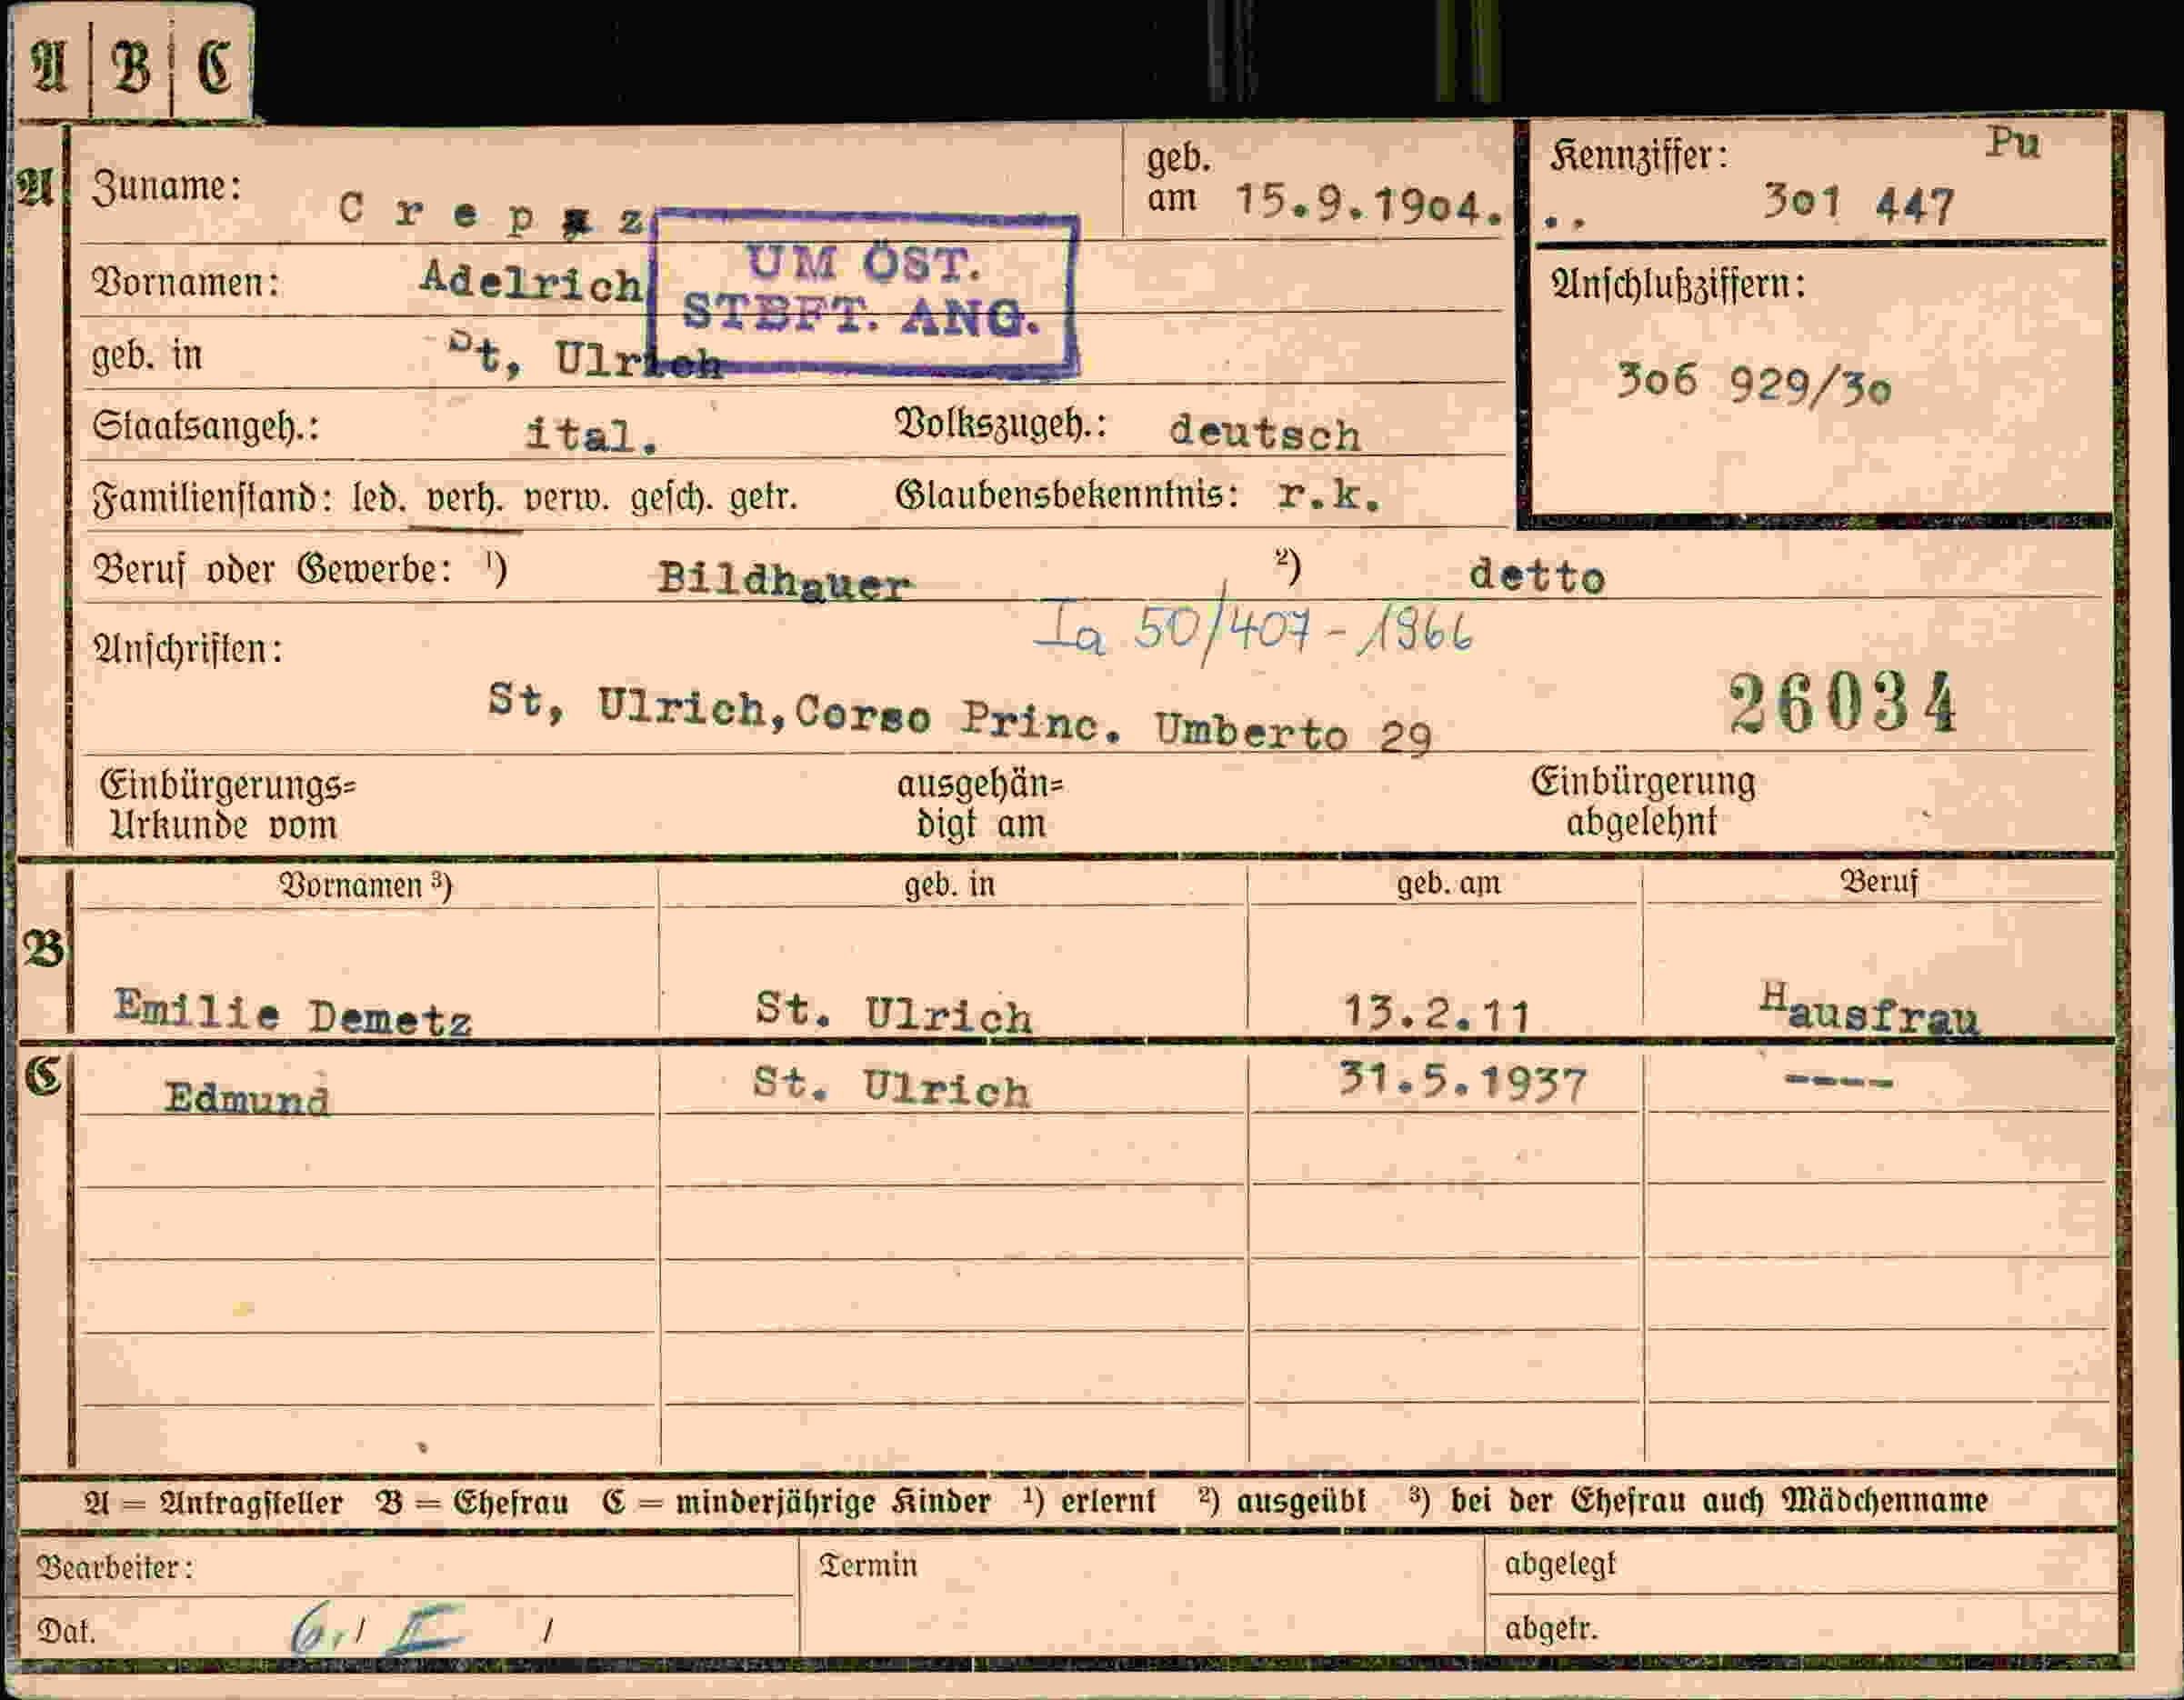 A B C
A Zuname: Crepaz geb. am 15.9.1904. .. Kennziffer: 301 447 Pu
UM ÖST.
STBFT. ANG.
Vornamen: Adelrich Anschlußziffern:
geb. in St, Ulrich 306 929/30
Staatsangeh.: ital. Volkszugeh.: deutsch
Familienstand: led. verh. verw. gesch. getr. Glaubensbekenntnis: r.k.
Beruf oder Gewerbe: 1) Bildhauer 2) detto
Ia 50/407-1966
Anschriften:
St, Ulrich, Corso Princ. Umberto 29 26034
Einbürgerungs= ausgehän= Einbürgerung
Urkunde vom digt am abgelehnt
Vornamen 3) geb. in geb. am Beruf
B Emilie Demetz St. Ulrich 13.2.11 Hausfrau
C Edmund St. Ulrich 31.5.1937 ----
A = Antragsteller B = Ehefrau C = minderjährige Kinder 1) erlernt 2) ausgeübt 3) bei der Ehefrau auch Mädchenname
Bearbeiter: Termin abgelegt
Dat. / II / abgetr.